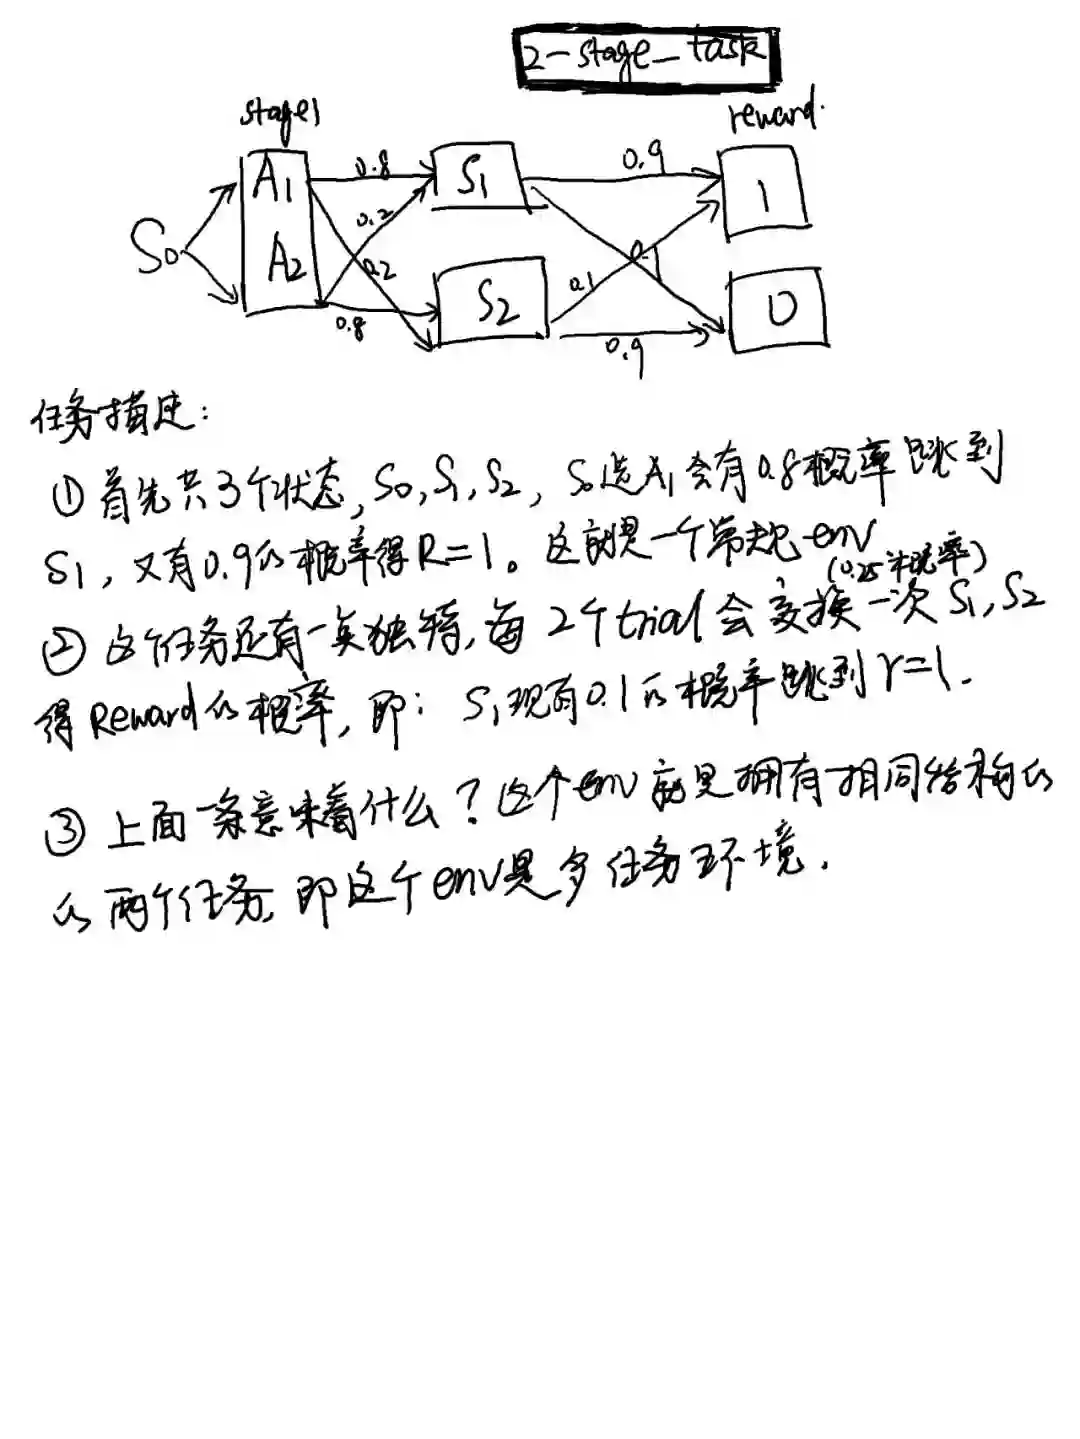 2-stage_task
stage1
reward.
A1
0.8
S1
0.9
1
S0
0.2
A2
0.2
0.1
S2
0.8
0.9
0
任务描述:
①首先共3个状态,S0,S1,S2, S0选A1会有0.8概率跳到
S1,又有0.9的概率得R=1。这就是一个常规env
(0.25概率)
②这个任务还有一点独特,每2个trial会变换一次S1,S2
得Reward的概率,即: S1现有0.1的概率跳到r=1.
③上面一条意味着什么?这个env就是拥有相同结构的
的两个任务,即这个env是多任务环境.